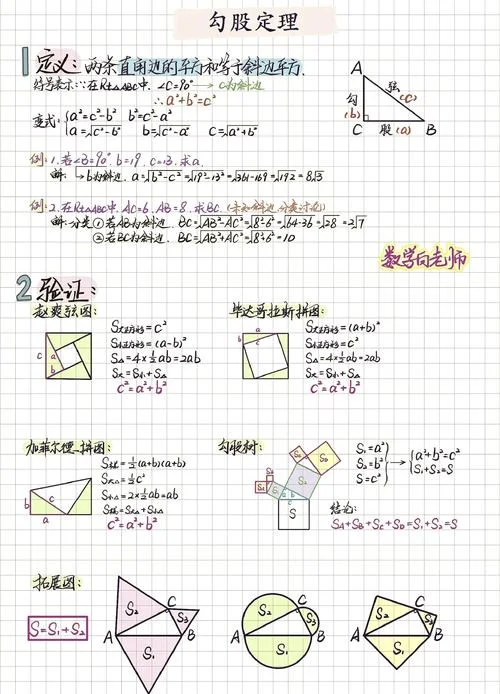 勾股定理
1 定义: 两条直角边的平方和等于斜边平方.
符号表示:∵在Rt△ABC中, ∠C=90° → C为斜边
∴a²+b²=c²
变式: {a²=c²-b² b²=c²-a²
a=√c²-b² b=√c²-a² c=√a²+b²
A
勾 (b)
弦 (c)
C 股 (a) B
例: 1. 若∠B=90°, b=19, c=13, 求a.
解: → b为斜边, a=√b²-c²=√19²-13²=√361-169=√192=8√3
例: 2. 在Rt△ABC中, AC=6, AB=8, 求BC. (未知斜边,分类讨论)
解: 分类 ①若AB为斜边, BC=√AB²-AC²=√8²-6²=√64-36=√28=2√7
②若BC为斜边, BC=√AB²+AC²=√8²+6²=10
数学向老师
2 验证:
赵爽弦图:
c a b
S大正方形=c²
S小正方形=(a-b)²
S△=4×½ab=2ab
S大=S小+S△
c²=a²+b²
毕达哥拉斯拼图:
a b c
S大正方形=(a+b)²
S小正方形=c²
S△=4×½ab=2ab
S大=S小+S△
c²=a²+b²
加菲尔德拼图:
b c a
S梯=½(a+b)(a+b)
S大△=½c²
S小△=2×½ab=ab
S梯=S大△+S小△
c²=a²+b²
勾股树:
S
S₁=a²
S₂=b²
S=c²
} → {a²+b²=c²
S₁+S₂=S
结论:
SA+SB+SC+SD=S₁+S₂=S
拓展图:
S=S₁+S₂
S₂ C S₃
A S₁ B
S₂ C S₃
A S₁ B
S₂ C S₃
A S₁ B